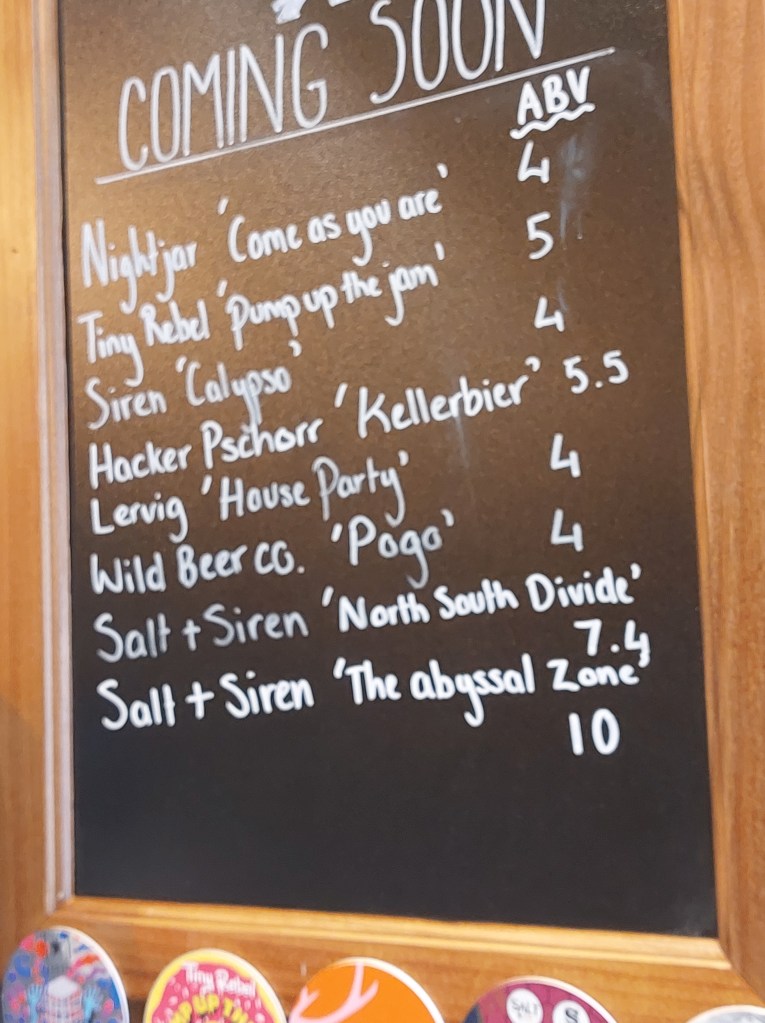 COMING SOON
ABV
Nightjar 'Come as you are' 4
Tiny Rebel 'Pump up the jam' 5
Siren 'Calypso' 4
Hacker Pschorr 'Kellerbier' 5.5
Lervig 'House Party' 4
Wild Beer co. 'Pogo' 4
Salt + Siren 'North South Divide'
7.4
Salt + Siren 'The abyssal Zone'
10
Tiny Rebel
UP THE
SALT
S